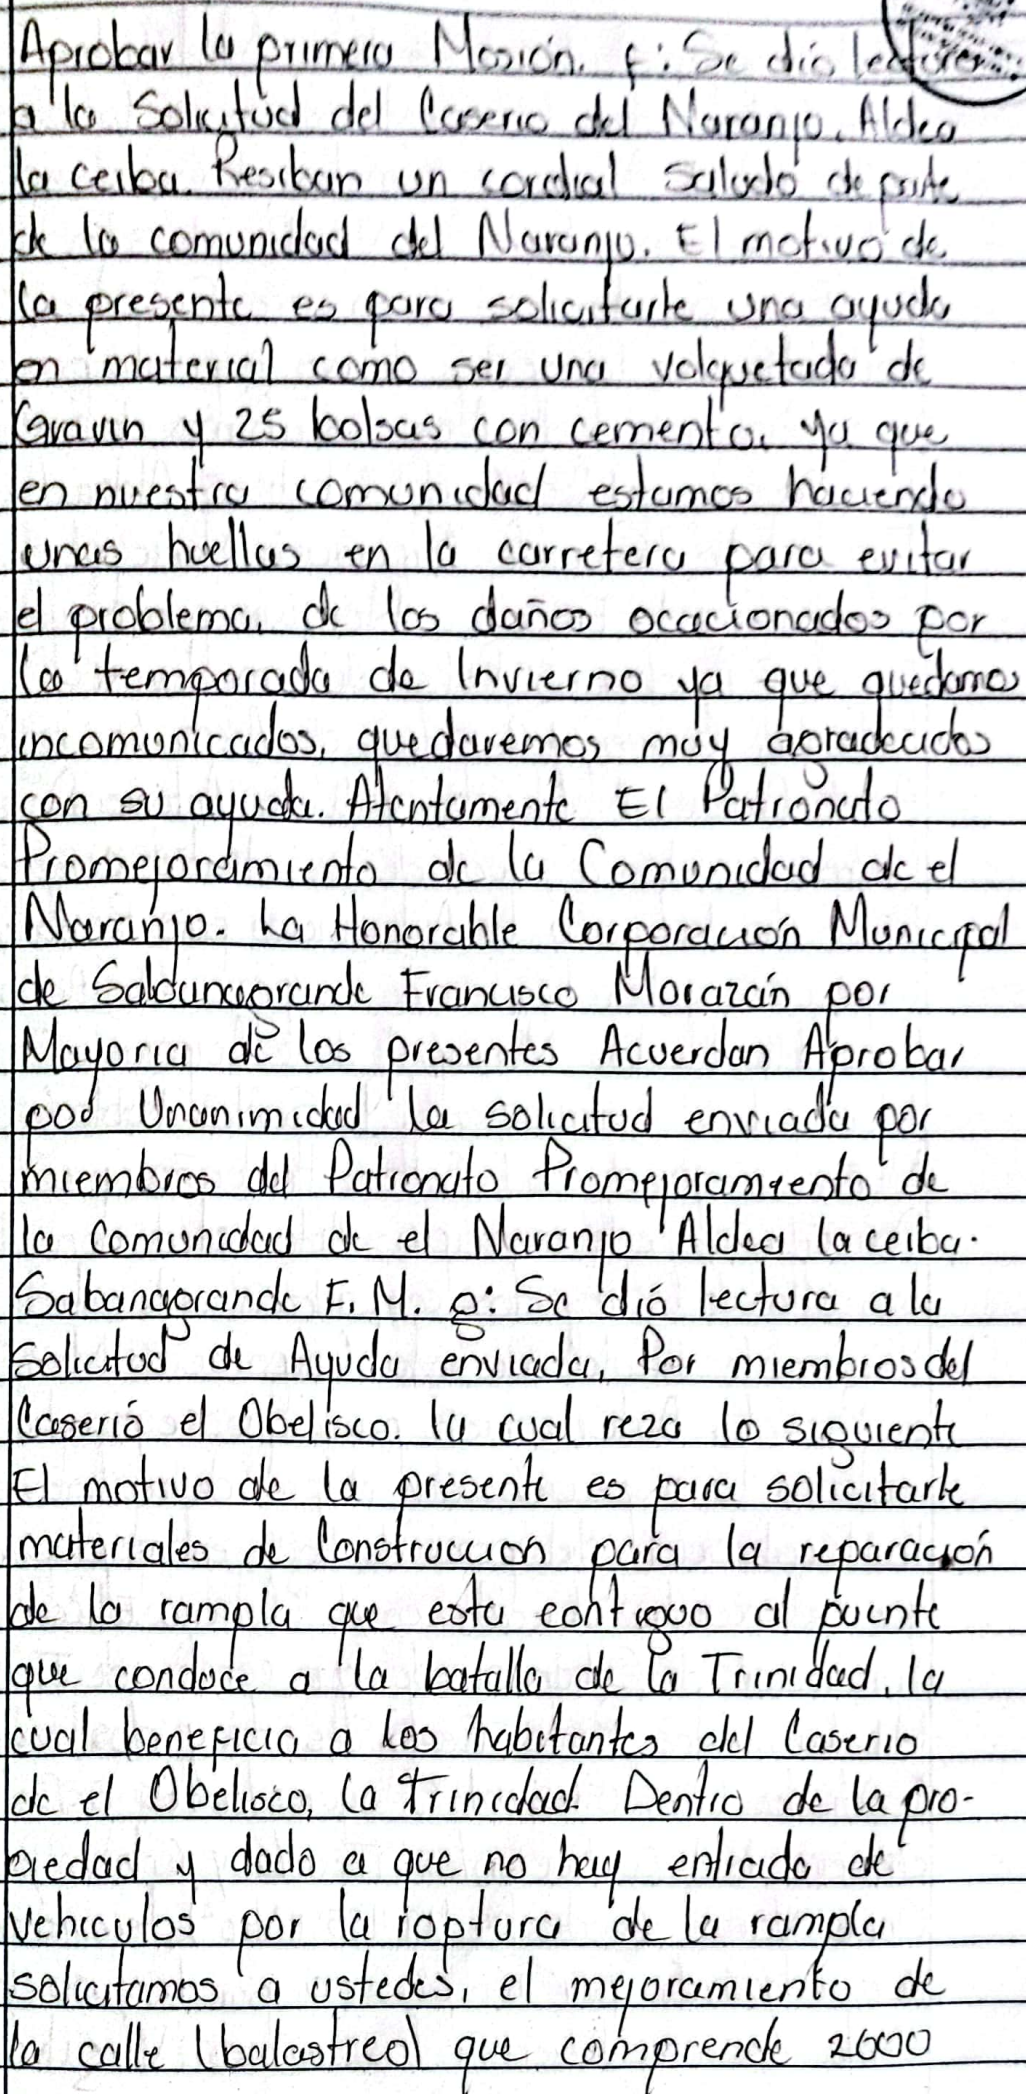 Aprobar la primera Mosión. f: Se dió lectura
a la Solicitud del Caserio del Naranjo, Aldea
la ceiba. Resiban un cordial saludo de parte
de la comunidad del Naranjo. El motivo de
la presente es para solicitarle una ayuda
en material como ser una volquetada de
Gravin y 25 bolsas con cemento. ya que
en nuestra comunidad estamos haciendo
unas huellas en la carretera para evitar
el problema, de los daños ocacionados por
la temporada de Invierno ya que quedamos
incomunicados, quedaremos muy agradecidos
con su ayuda. Atentamente El Patronato
Promejoramiento de la Comunidad de el
Naranjo. La Honorable Corporación Municipal
de Sabanagrande Francisco Morazán por
Mayoria de los presentes Acuerdan Aprobar
por Unanimidad la solicitud enviada por
miembros del Patronato Promejoramiento de
la Comunidad de el Naranjo Aldea la ceiba.
Sabanagrande F. M. g: Se dió lectura a la
Solicitud de Ayuda enviada, Por miembros del
Caserió el Obelisco. la cual reza lo siguiente
El motivo de la presente es para solicitarle
materiales de Construccion para la reparación
de la rampla que esta contiguo al puente
que conduce a la batalla de la Trinidad, la
cual beneficia a los habitantes del Caserio
de el Obelisco, la Trinidad. Dentro de la pro-
piedad y dado a que no hay entrada de
vehiculos por la roptura de la rampla
solicitamos a ustedes, el mejoramiento de
la calle (balastreo) que comprende 2000